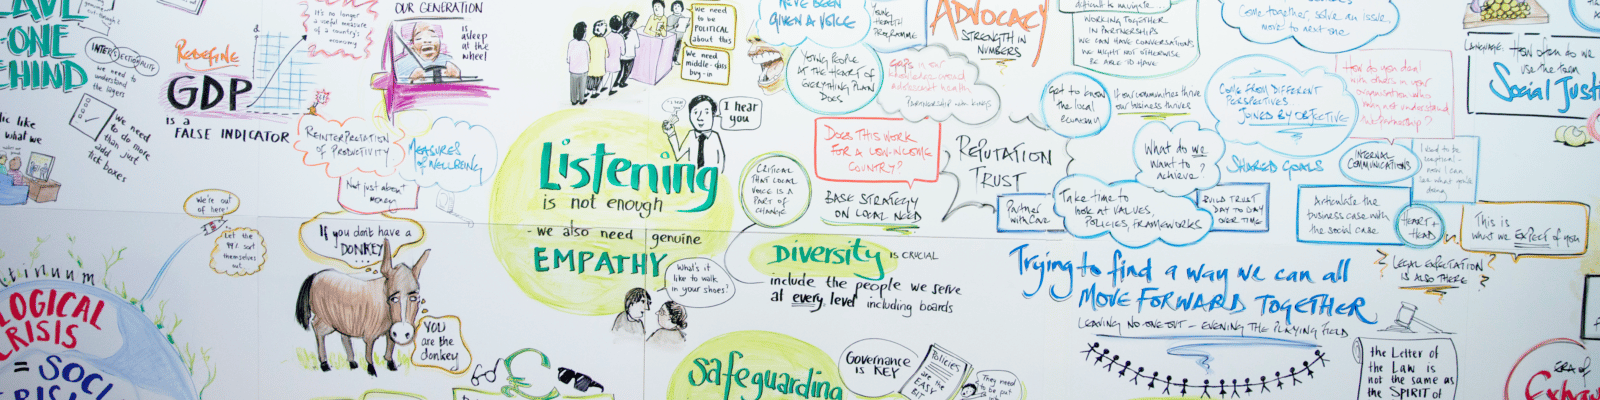 -ONE
EHIND
INTERSECTIONALITY
we need to
understand
the layers
we need
to do more
than just
add
tick boxes
lic like
what we
It's no longer
a useful measure
of a country's
economy
REDEFINE
GDP
is a
FALSE INDICATOR
OUR GENERATION
is
asleep
at the
wheel
REINTERPRETATION
OF PRODUCTIVITY
MEASURES
OF WELLBEING
Not just about
money
We're out
of here!
Let the
99% sort
themselves
out...
LOGICAL
CRISIS
= SOCI
If you don't have a
DONKEY
...
YOU
are the
donkey
We need
to be
POLITICAL
about this
We need
middle-class
buy-in
I hear
you
Listening
is not enough
- we also need genuine
EMPATHY
What's it
like to walk
in your shoes?
HAVE BEEN
GIVEN A VOICE
YOUNG
HEALTH
PROGRAMME
YOUNG PEOPLE
AT THE HEART OF
EVERYTHING PLAN
DOES
ADVOCACY
STRENGTH IN
NUMBERS
CRITICAL
THAT LOCAL
VOICE IS A
PART OF
CHANGE
DOES THIS WORK
FOR A LOW-INCOME
COUNTRY?
BASE STRATEGY
ON LOCAL NEED
REPUTATION
TRUST
Diversity IS CRUCIAL
include the people we serve
at every level including boards
Safeguarding
Governance
is KEY
Policies
are the
EASY
BIT
They need
to be put
difficult to navigate...
WORKING TOGETHER
IN PARTNERSHIPS
WE CAN HAVE CONVERSATIONS
WE MIGHT NOT OTHERWISE
BE ABLE TO HAVE
Got to know
the local
economy
If our communities thrive
our business thrives
Come together, solve an issue,
move to next one
COME FROM DIFFERENT
PERSPECTIVES
JOINED BY OBJECTIVE
What do we
want to
achieve?
SHARED GOALS
Partner
with Care
Take time to
look at VALUES,
POLICIES, FRAMEWORKS
BUILD TRUST
DAY TO DAY
OVER TIME
INTERNAL
COMMUNICATIONS
Articulate the
business case with
the social case
HEART +
HEAD
This is
what we EXPECT of you
? LEGAL EXPECTATION ?
IS ALSO THERE
Trying to find a way we can all
MOVE FORWARD TOGETHER
LEAVING NO-ONE OUT - EVENING THE PLAYING FIELD
the Letter of
the Law is
not the same as
the SPIRIT of
LANGUAGE. How often do we
use the term
Social Justi
ERA of
Exhau